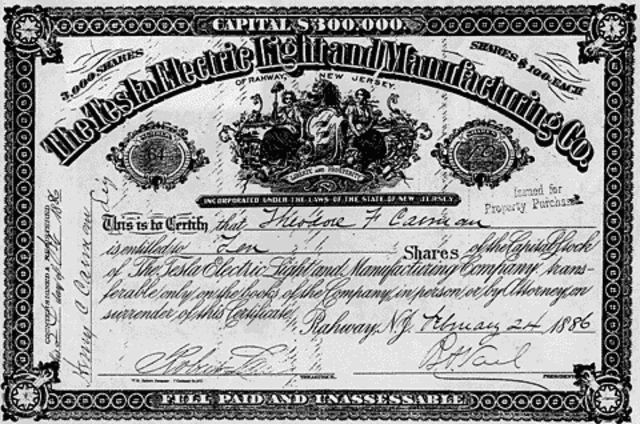 CAPITAL $300,000.
3,000 SHARES
SHARES $100 EACH
The Tesla Electric Light and Manufacturing Co.
OF RAHWAY, NEW JERSEY.
LIBERTY AND PROSPERITY
INCORPORATED UNDER THE LAWS OF THE STATE OF NEW JERSEY.
Issued for
Property Purchased
This is to Certify that Theodore F Cameron
is entitled to Ten Shares of the Capital Stock
of The Tesla Electric Light and Manufacturing Company, trans-
ferable only on the books of the Company in person or by Attorney, on
surrender of this Certificate.
Rahway, N.J. February 24 1886
PRESIDENT
FULL PAID AND UNASSESSABLE
COUNTERSIGNED & REGISTERED
day of 1886